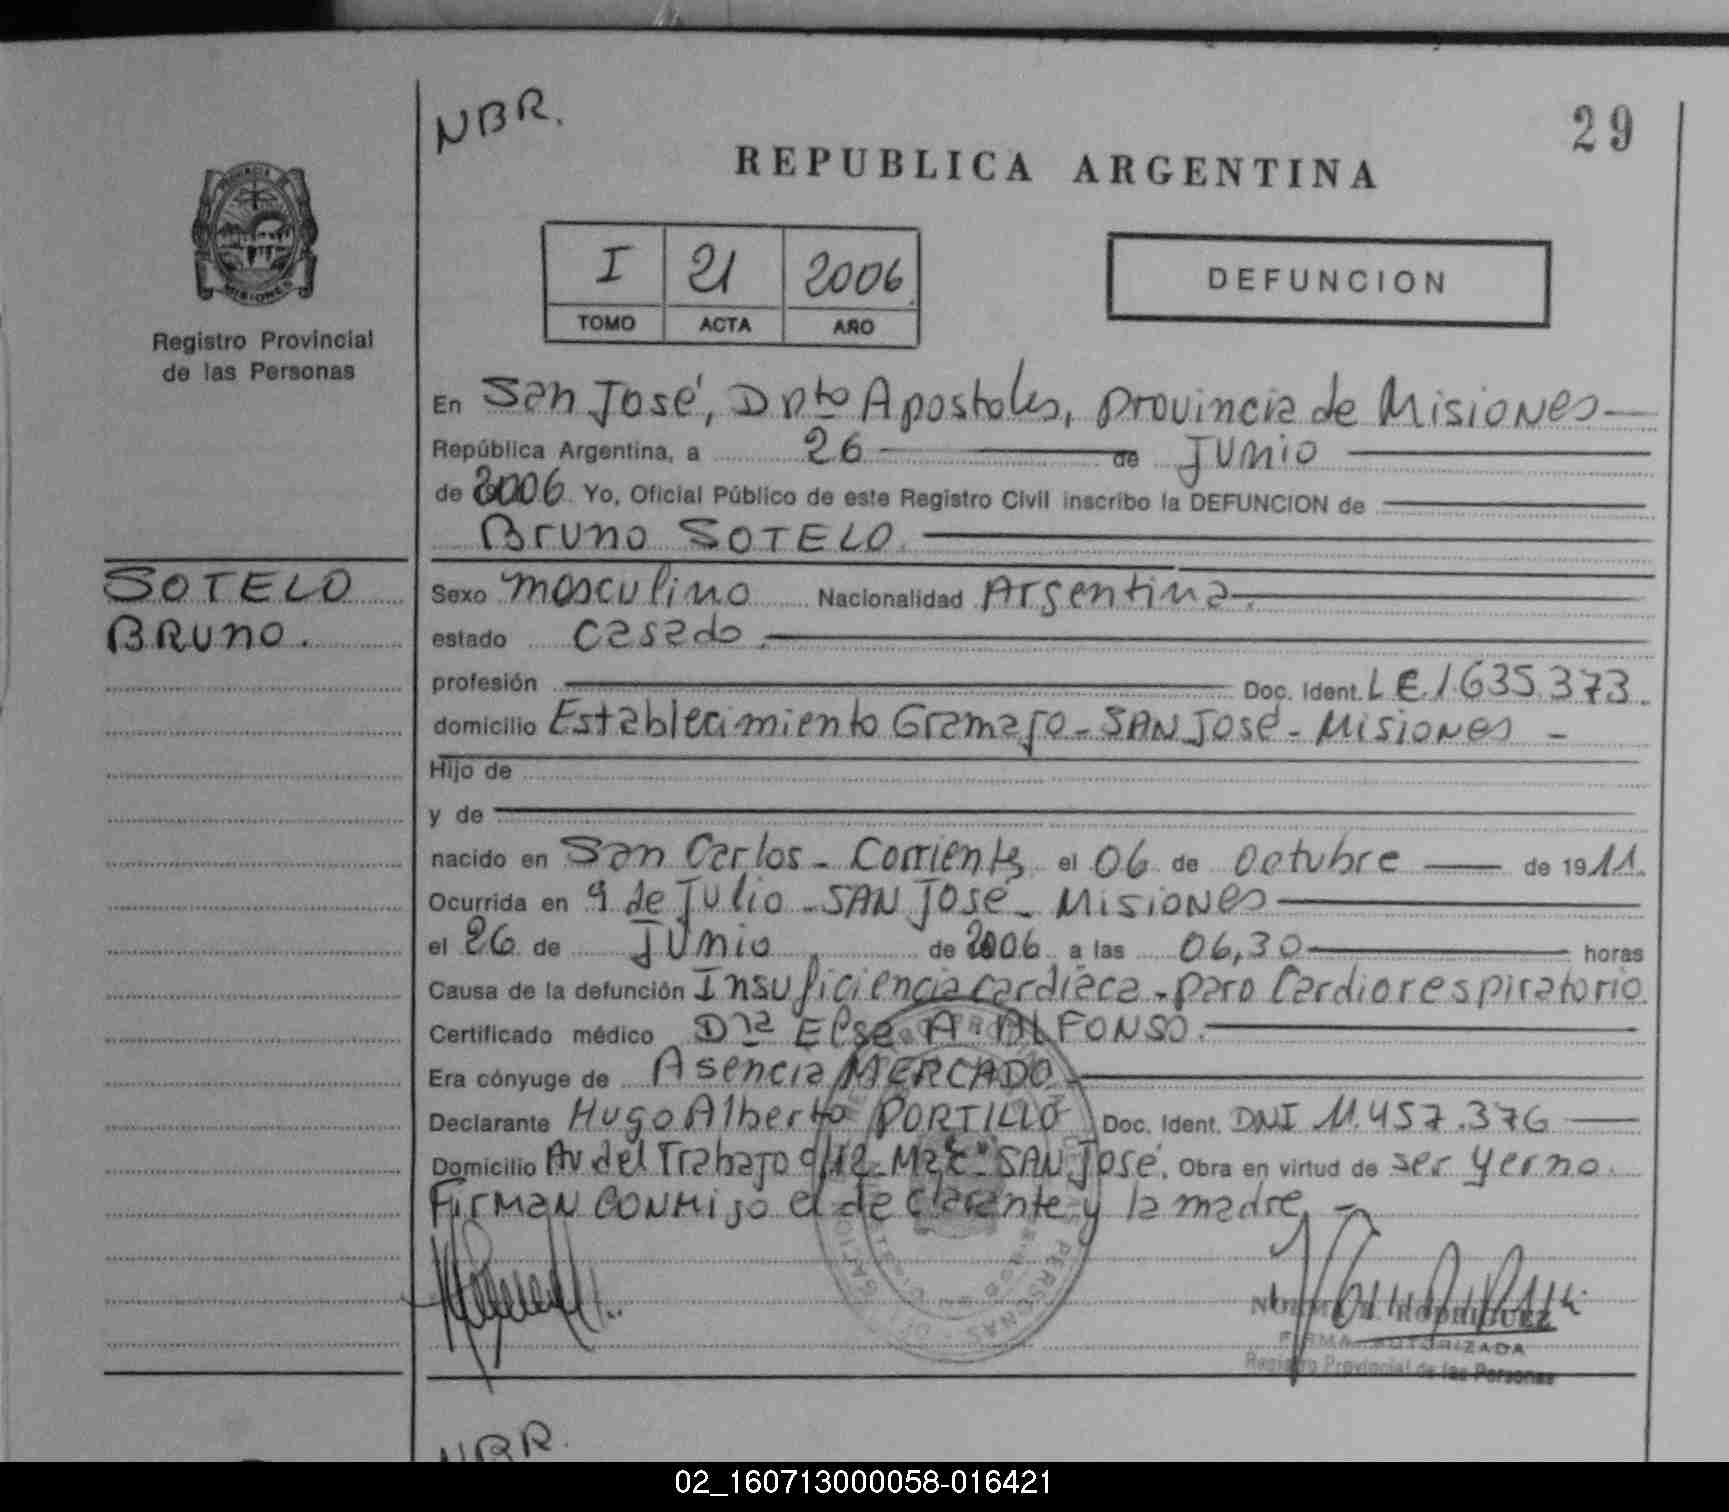 NBR.
29
REPUBLICA ARGENTINA
PROVINCIA DE
MISIONES
Registro Provincial
de las Personas
I 21 2006
TOMO ACTA AÑO
DEFUNCION
En San José, Dpto Apostoles, provincia de Misiones
República Argentina, a 26 de Junio
de 2006 Yo, Oficial Público de este Registro Civil inscribo la DEFUNCION de
Bruno SOTELO.
SOTELO
BRUNO.
Sexo masculino Nacionalidad Argentina.
estado casado.
profesión Doc. Ident. LE.1.635.373.
domicilio Establecimiento Gramajo - SAN José - Misiones -
Hijo de
y de
nacido en San Carlos - Corrientes el 06 de octubre de 1911.
Ocurrida en 9 de Julio - SAN José - Misiones
el 26 de Junio de 2006 a las 06,30 horas
Causa de la defunción Insuficiencia cardiaca - paro cardiorespiratorio
Certificado médico Dra Elsa A ALFONSO.
Era cónyuge de Asencia MERCADO
Declarante Hugo Alberto PORTILLO Doc. Ident. DNI 11.457.376
Domicilio Av del Trabajo SAN José. Obra en virtud de ser yerno.
Firman conmigo el declarante y la madre
RODRIGUEZ
FIRMA AUTORIZADA
Registro Provincial de las Personas
NBR.
02_160713000058-016421